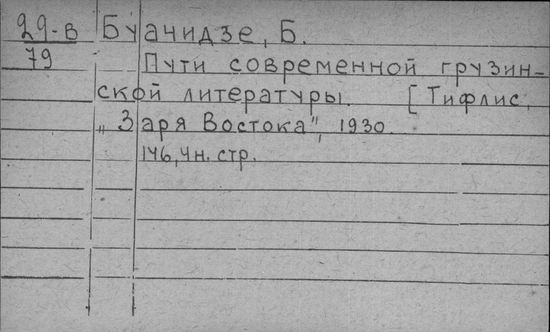 29-в Буачидзе, Б.
79
Пути современной грузин-
ской литературы. [Тифлис,
„Заря Востока", 1930.
146, 4н. стр.